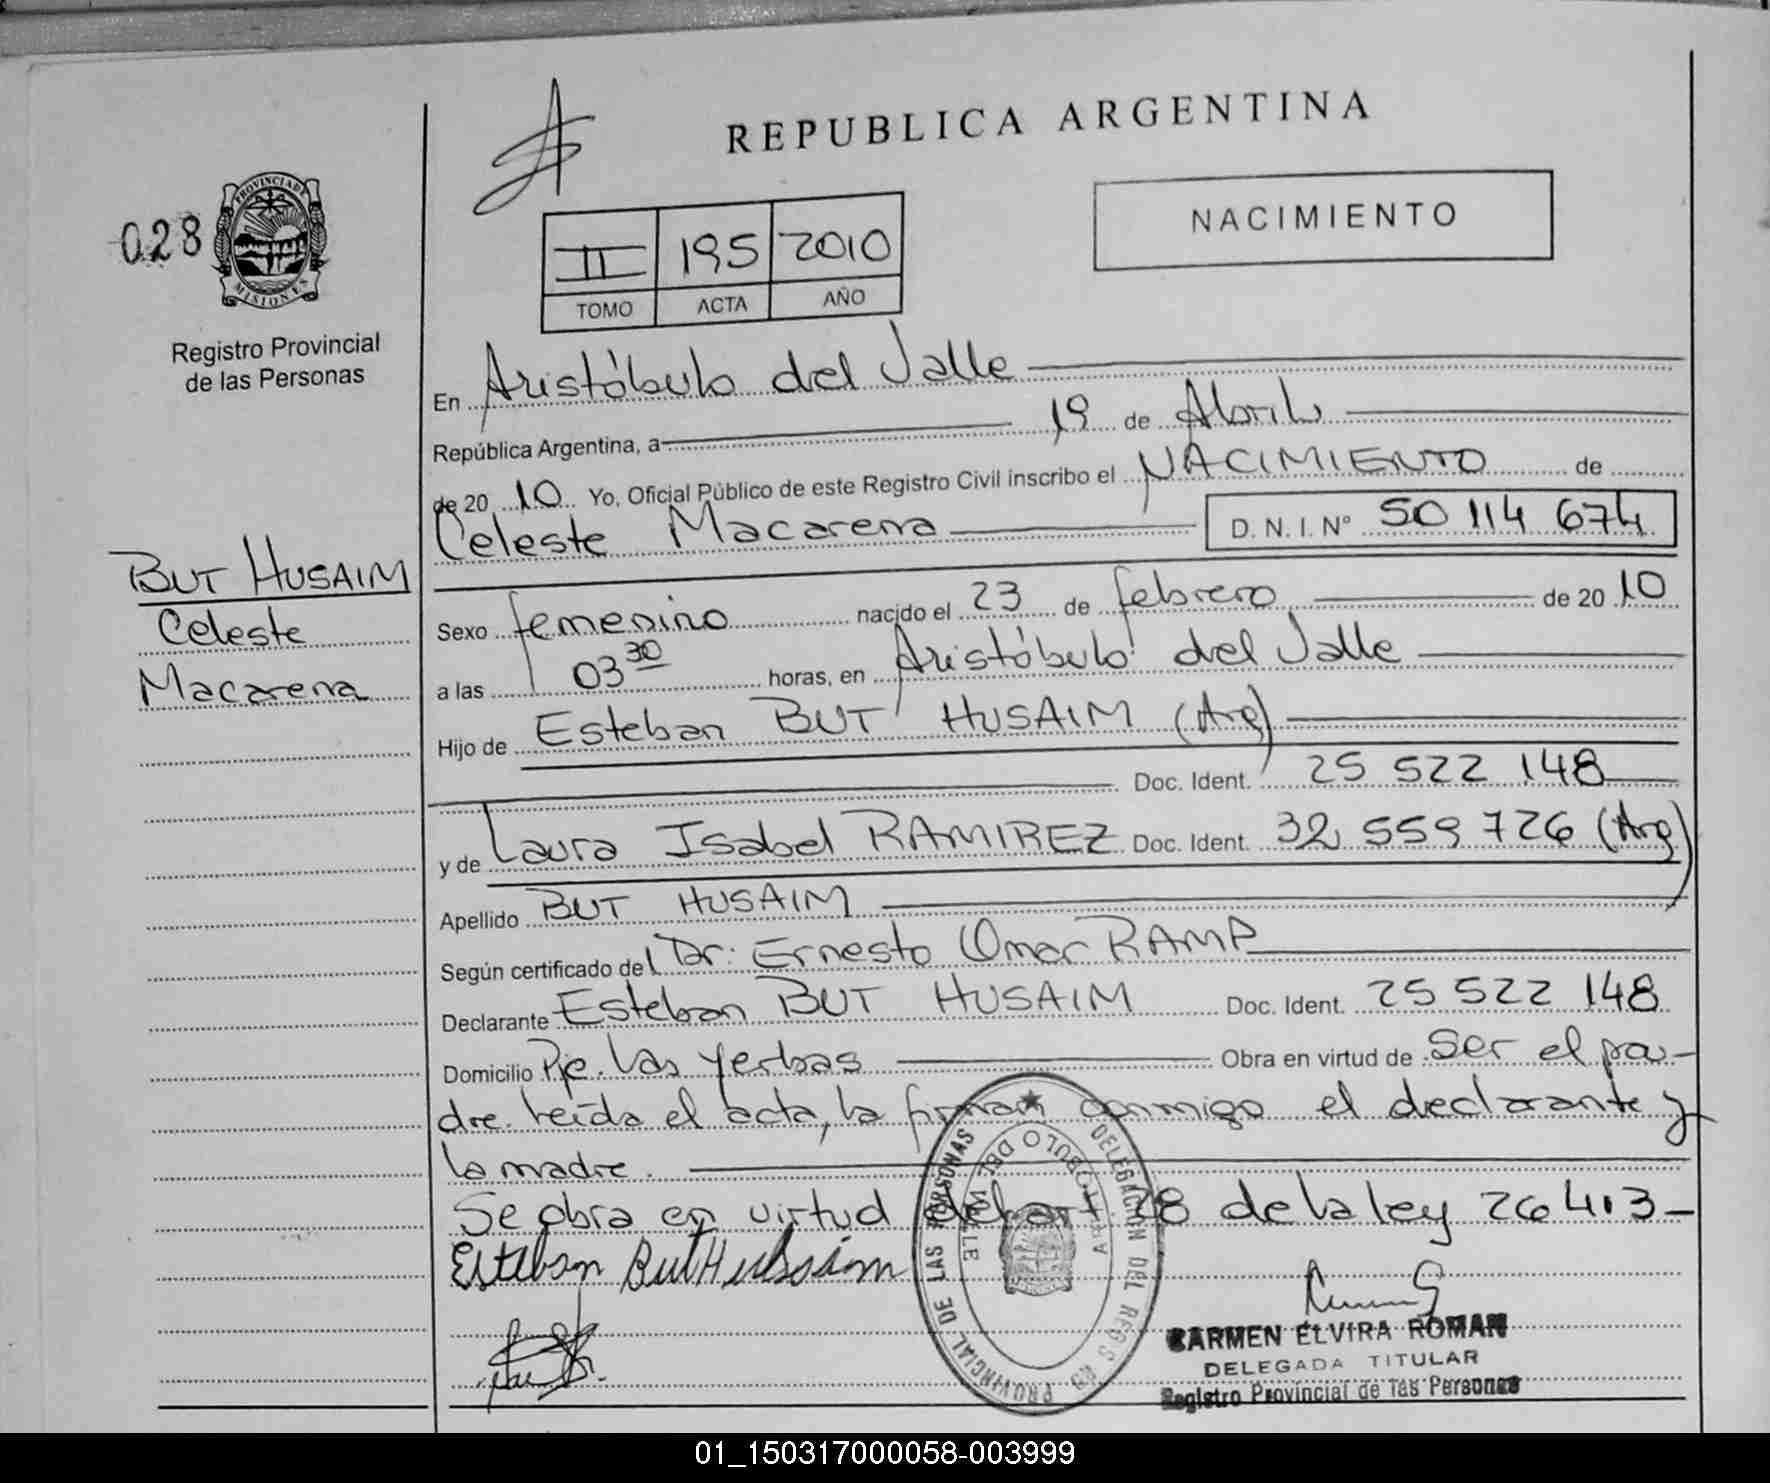 REPUBLICA ARGENTINA
NACIMIENTO
028
PROVINCIA DE
MISIONES
Registro Provincial
de las Personas
II 195 2010
TOMO ACTA AÑO
En Aristóbulo del Valle
República Argentina, a 19 de Abril
de 20 10 Yo, Oficial Público de este Registro Civil inscribo el NACIMIENTO de
Celeste Macarena D. N. I. Nº 50 114 674
BUT HUSAIM
Celeste
Macarena
Sexo femenino nacido el 23 de febrero de 20 10
a las 03 30 horas, en Aristóbulo del Valle
Hijo de Esteban BUT HUSAIM (Arg)
Doc. Ident. 25 522 148
y de Laura Isabel RAMIREZ Doc. Ident. 32 559 726 (Arg)
Apellido BUT HUSAIM
Según certificado del Dr: Ernesto Omar RAMP
Declarante Esteban BUT HUSAIM Doc. Ident. 25 522 148
Domicilio Pje. Las Yerbas Obra en virtud de Ser el pa-
dre. leída el acta, la firman conmigo el declarante y
la madre.
Se obra en virtud del art 28 de la ley 26413-
Esteban But Hussaim
DELEGACION DEL REGIS RO PROVINCIAL DE LAS PERSONAS
ARISTOBULO DEL VALLE
CARMEN ELVIRA ROMAN
DELEGADA TITULAR
Registro Provincial de las Personas
01_150317000058-003999